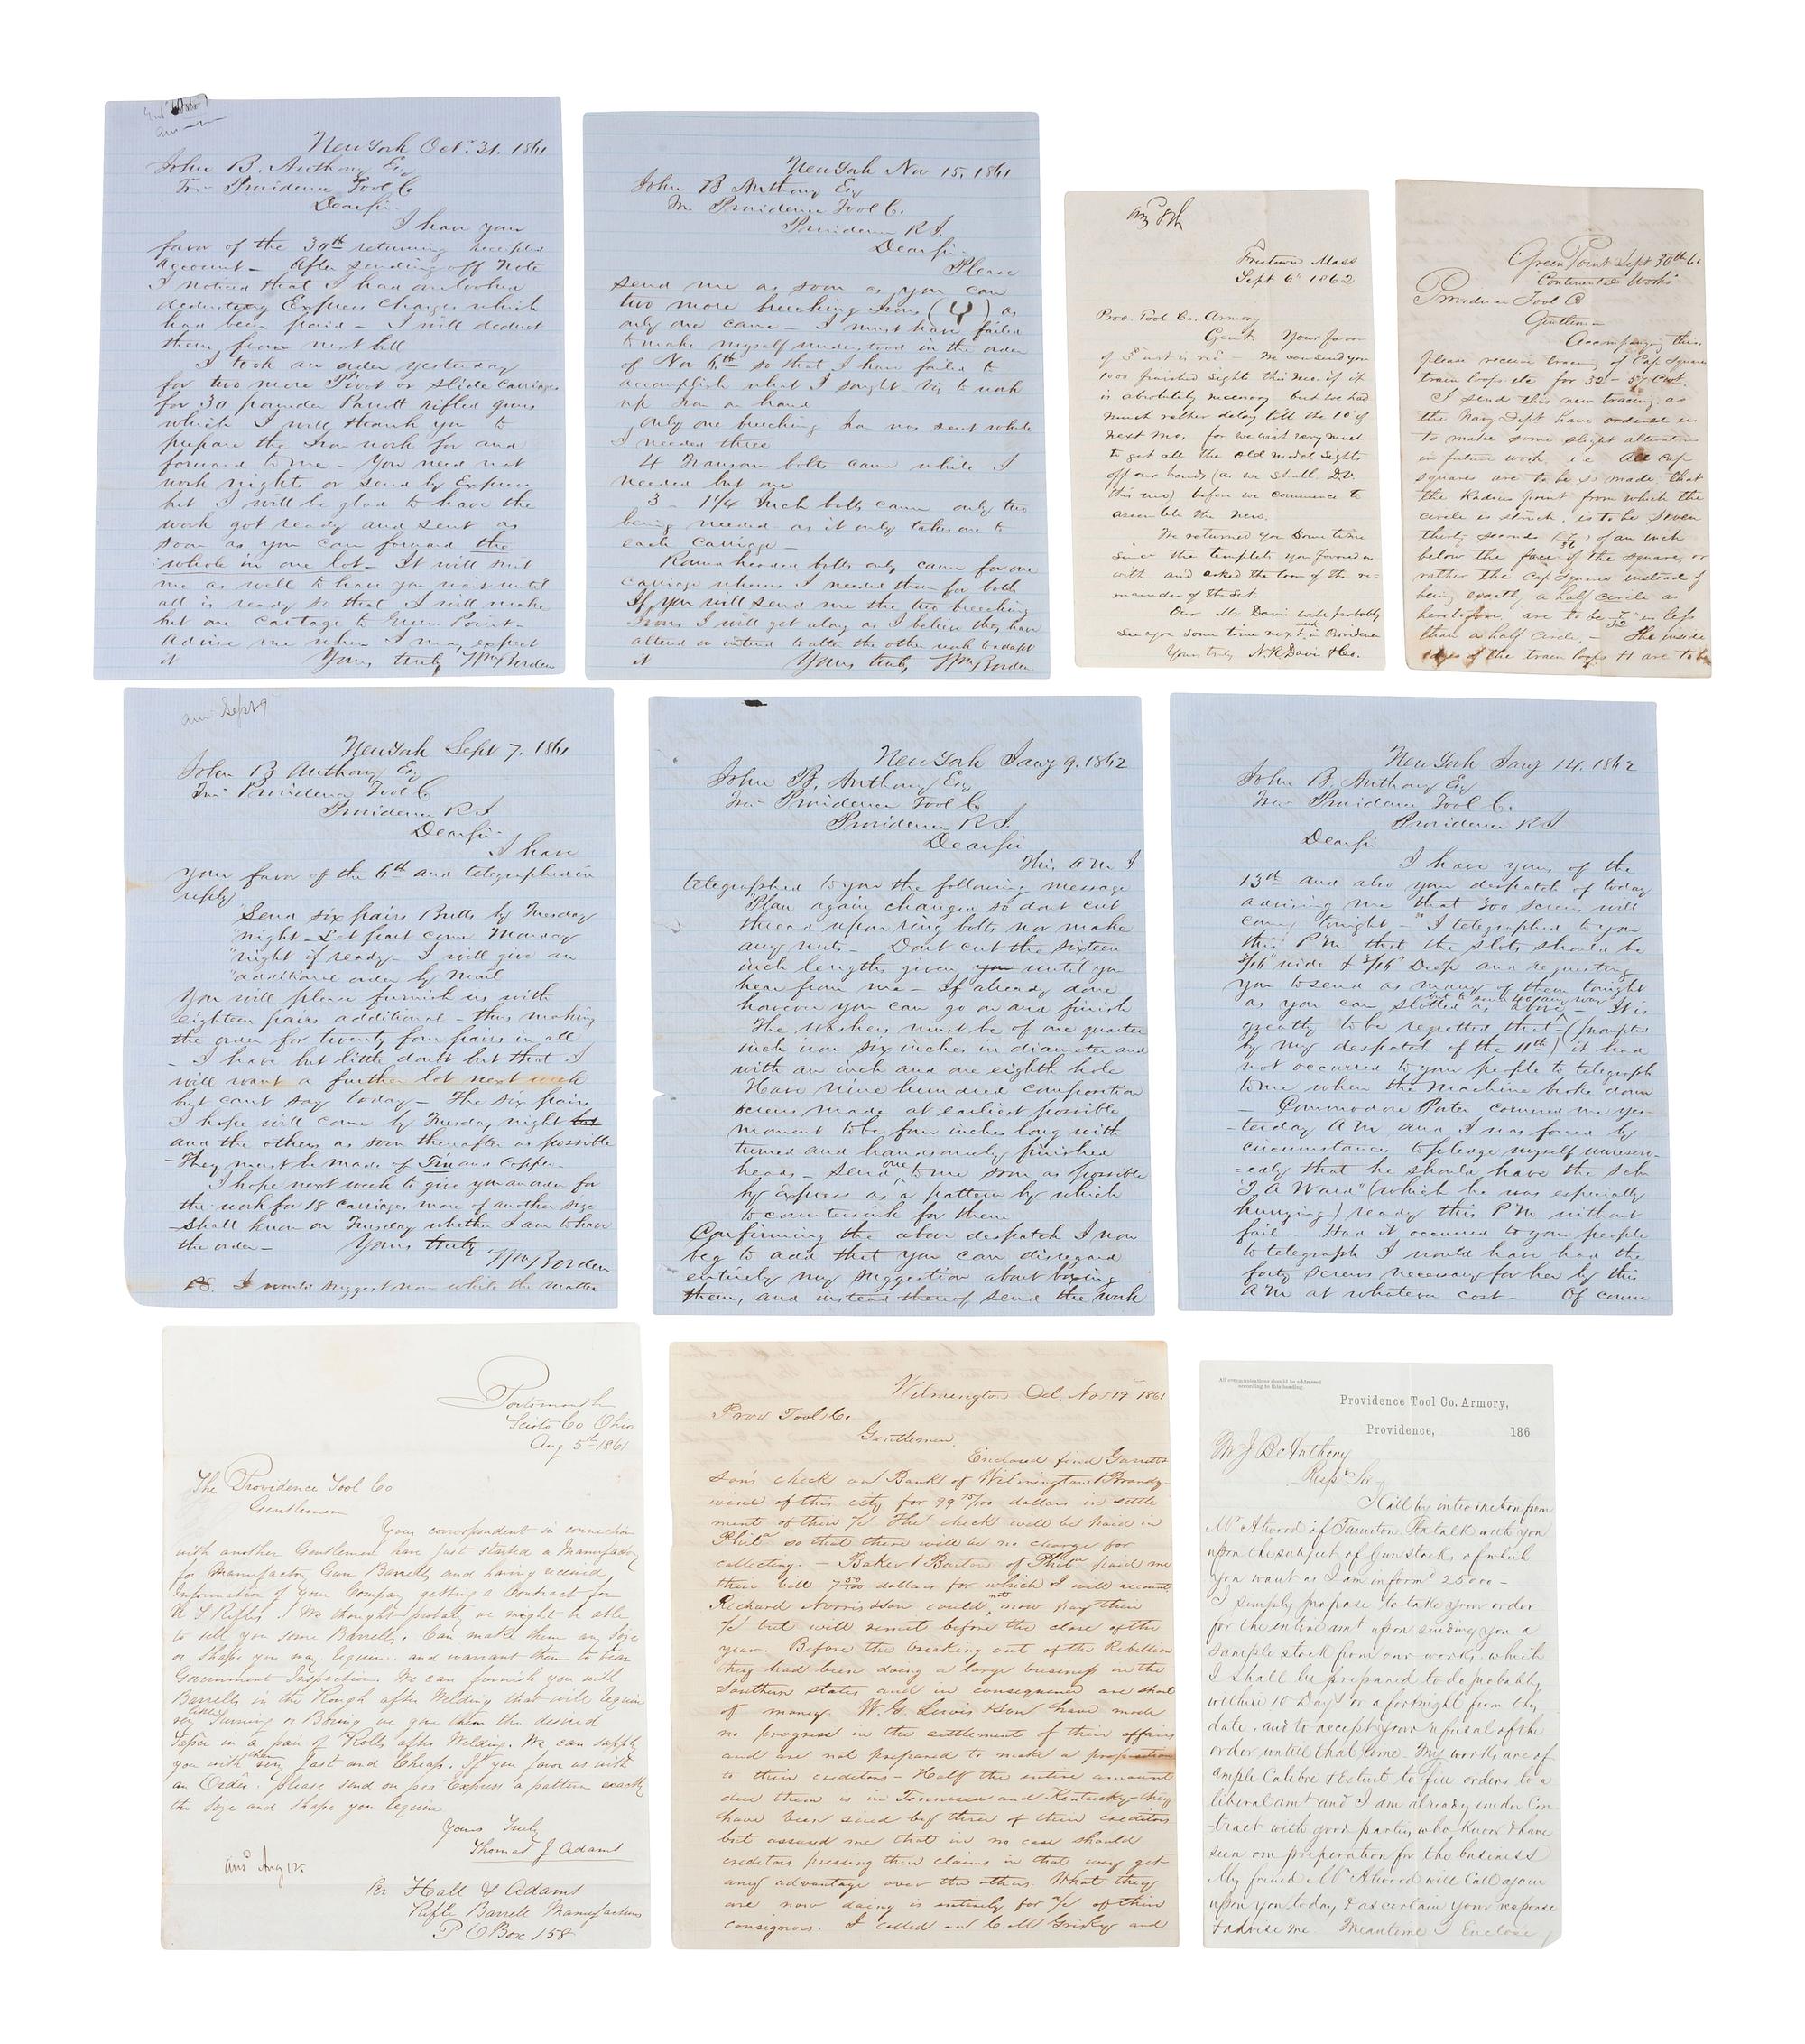 New York Oct. 31. 1861
John B. Anthony Esq
Providence Tool Co
Dear Sir
I have your
favor of the 30th returning accepted
account - After sending off Note
I noticed that I had overlooked
deducting Express charges which
had been paid - I will deduct
them from next bill
I took an order yesterday
for two more Pivot or slide carriages
for 30 pounder Parrott rifled guns
which I will thank you to
prepare the Iron work for and
forward to me - You need not
work nights or send by Express
but I will be glad to have the
work got ready and sent as
soon as you can forward the
whole in one lot - It will suit
me as well to have you wait until
all is ready so that I will make
but one cartage to Green Point -
Advise me when I may expect
it Yours truly Wm Borden
New York Nov 15, 1861
John B Anthony Esq
Providence Tool Co.
Providence R.I.
Dear Sir
Please
send me as soon as you can
two more breeching Irons ( ) as
only one came - I must have failed
to make myself understood in the order
of Nov 6th so that I have failed to
accomplish what I sought viz to work
up Iron on hand
Only one breeching Iron was sent while
I needed three
4 Transom bolts came while I
needed but one
3 - 1 1/4 Inch bolts came only two
being needed as it only takes one to
each carriage -
Round headed bolts only came for one
carriage whereas I needed them for both
If you will send me the two breeching
Irons I will get along as I believe they have
altered or intend to alter the other work to adapt
it Yours truly Wm Borden
Freetown Mass
Sept 6th 1862
Prov. Tool Co. Armory
Gent. Your favor
of 3d inst is rec'd - We can send you
1000 finished sights this mo. if it
is absolutely necessary but we had
much rather delay till the 10th of
next mo. for we wish very much
to get all the old model sights
off our hands (as we shall D.V.
this mo) before we commence to
assemble the new.
We returned you some time
since the templets you favored us
with and asked the loan of the re-
mainder of the set.
Our Mr Davis will probably
see you some time next week in Providence
Yours truly N.R. Davis & Co.
Green Point Sept 30th 61
Continental Works
Providence Tool Co
Gentlemen
Accompanying this
please receive tracing of Cap Square
train loops etc for 32 - 57 Cwt.
I send this new tracing as
the Navy Dept have ordered us
to make some slight alteration
in future work i.e. All cap
squares are to be so made that
the Radius point from which the
circle is struck, is to be seven
thirty seconds of an inch
below the face of the square, or
rather the Cap Squares instead of
being exactly a half circle as
heretofore are to be in less
than a half circle, - The inside
edges of the train loops H are to be
Sept 9
New York Sept 7. 1861
John B Anthony Esq
Providence Tool Co
Providence R.I
Dear Sir
I have
your favor of the 6th and telegraphed in
reply
"Send six pairs Butts by Tuesday
"night - Let part come Monday
"night if ready - I will give an
"additional order by Mail
You will please furnish us with
eighteen pairs additional - thus making
the order for twenty four pairs in all
- I have but little doubt but that I
will want a further lot next week
but cant say today - The six pairs
I hope will come by Tuesday night but
and the others as soon thereafter as possible
- They must be made of Tin and Copper -
I hope next week to give you an order for
the work for 18 carriages more of another size
Shall know on Tuesday whether I am to have
the order - Yours truly
Wm Borden
PS. I would suggest now while the matter
New York Jany 9. 1862
John B. Anthony Esq
Providence Tool Co
Providence R.I.
Dear Sir
This A.M. I
telegraphed to you the following message
"Plan again changed so dont cut
thread upon ring bolts nor make
any nuts - Dont cut the sixteen
inch lengths given you until you
hear from me - If already done
however you can go on and finish
The washers must be of one quarter
inch iron six inches in diameter and
with an inch and one eighth hole
Have nine hundred composition
screws made at earliest possible
moment to be four inches long with
turned and handsomely finished
heads - Send one to me soon as possible
by Express as a pattern by which
to countersink for them
Confirming the above despatch I now
beg to add that you can disregard
entirely my suggestion about boxing
them, and instead thereof send the work
New York Jany 14. 1862
John B. Anthony Esq
Providence Tool Co.
Providence R.I.
Dear Sir
I have yours of the
13th and also your despatch of today
advising me "that 300 screws will
come tonight" I telegraphed to you
this P.M. that the slots should be
3/16" wide & 3/16" Deep and requesting
you to send as many of them tonight
as you can slotted as above - It is
but to send 40 any way
greatly to be regretted that - (prompted
by my despatch of the 11th) it had
not occurred to your people to telegraph
to me when the Machine broke down
- Commodore Porter cornered me yes-
-terday A.M. and I was forced by
circumstances to pledge myself unreserv-
-edly that he should have the schr
"T A Ward" (which he was especially
hurrying) ready this P.M. without
fail - Had it occurred to your people
to telegraph I would have had the
forty screws necessary for her by this
A.M. at whatever cost - Of course
Portsmouth
Scioto Co Ohio
Aug 5th 1861
The Providence Tool Co
Gentlemen
Your correspondent in connection
with another Gentlemen have just started a Manufactory
for Manufactory Gun Barrells and having received
Information of your Company getting a Contract for
U S Rifles. We thought probably we might be able
to sell you some Barrells. Can make them any Size
or Shape you may require, and warrant them to bear
Government Inspection. We can furnish you with
Barrells in the Rough after Welding that will require
very little Turning or Boring we give them the desired
Taper in a pair of Rolls after Welding. We can supply
you with them very fast and Cheap. If you favor us with
an Order. please send on per Express a pattern exactly
the Size and Shape you require
Yours Truly
Thomas J Adams
ans Aug 12
Per Hall & Adams
Rifle Barrell Manufacturers
P O Box 158
Wilmington Del. Nov 19th 1861
Prov Tool Co.
Gentlemen,
Enclosed find Garrett
Son's check on Bank of Wilmington & Brandy-
wine of this city for 99 75/100 dollars in settle
ment of their a/c The check will be paid in
Phila so that there will be no charge for
collecting. - Baker & Barton of Phila paid me
their bill 7 50/100 dollars for which I will account
Richard Norris & son could not now pay their
a/c but will remit before the close of the
year. Before the breaking out of the Rebellion
they had been doing a large business in the
Southern states and in consequence are short
of money. W. G. Lewis & Son have made
no progress in the settlement of their affairs
and are not prepared to make a proposition
to their creditors - Half the entire amount
due them is in Tennessee and Kentucky - they
have been sued by three of their creditors
but assured me that in no case should
creditors pressing their claims in that way get
any advantage over the others. What they
are now doing is entirely for a/c of their
consignors. I called on and
All communications should be addressed
according to this heading.
Providence Tool Co. Armory,
Providence, 186
Mr J B Anthony
Resp Sir
I call by introduction from
Mr Atwood of Taunton to talk with you
upon the subject of Gun Stocks of which
you want as I am informd 25000 -
I simply propose to take your order
for the entire amt upon sending you a
sample stock from our works which
I shall be prepared to do probably
within 10 Days or a fortnight from this
date. and to accept your refusal of the
order until that time - My works are of
ample Calibre & Extent to fill orders to a
liberal amt and I am already under Con
-tract with good parties who know & have
seen our preparation for the business
My friend Mr Atwood will Call again
upon you today & ascertain your response
& advise me Meantime I Enclose